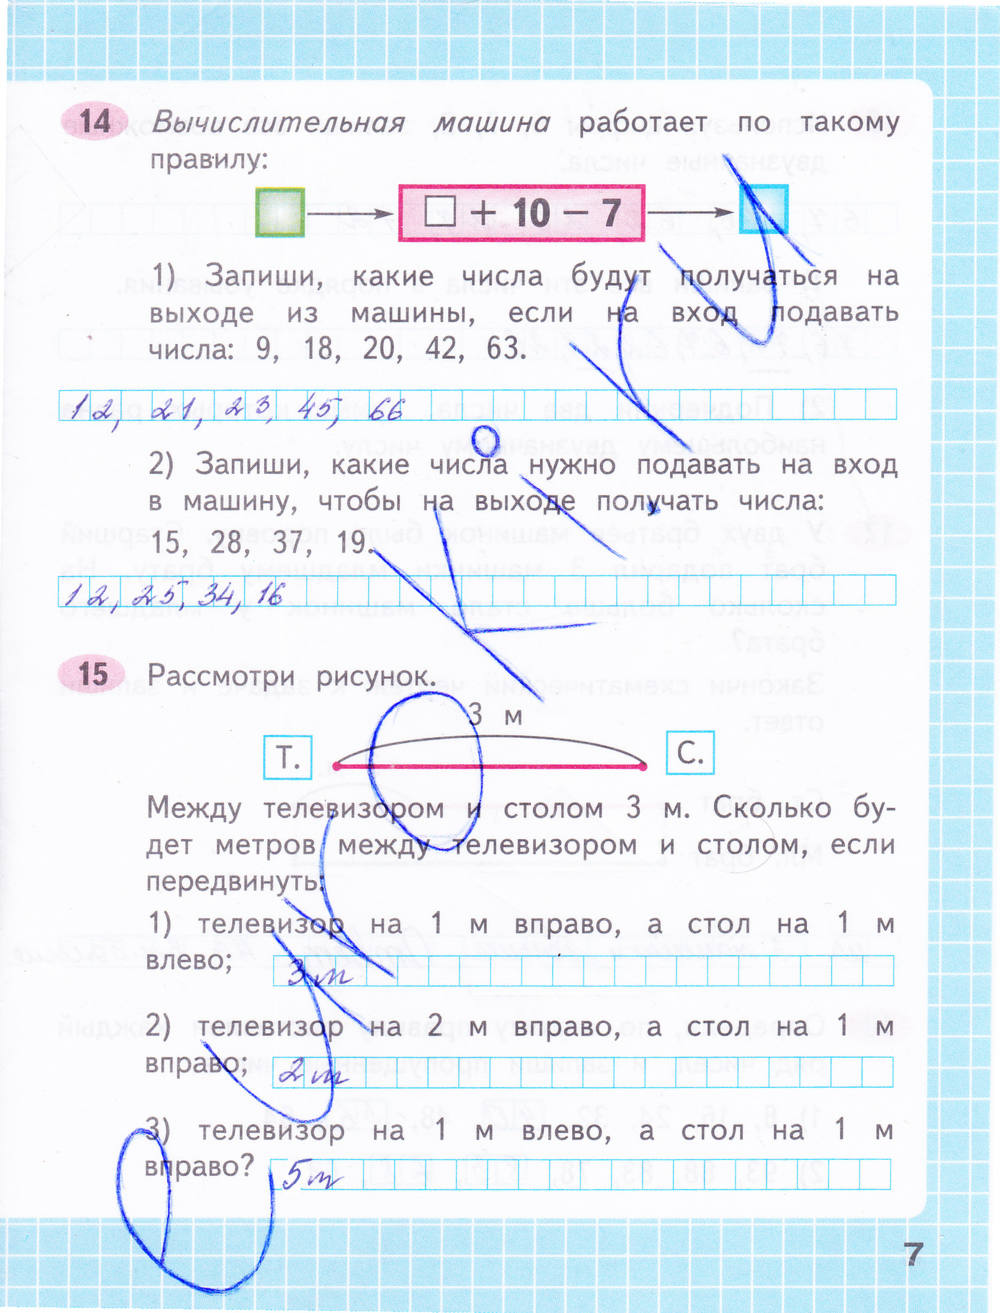 14 Вычислительная машина работает по такому
правилу:
□ + 10 − 7
1) Запиши, какие числа будут получаться на
выходе из машины, если на вход подавать
числа: 9, 18, 20, 42, 63.
12, 21, 23, 45, 66
2) Запиши, какие числа нужно подавать на вход
в машину, чтобы на выходе получать числа:
15, 28, 37, 19.
12, 25, 34, 16
15 Рассмотри рисунок.
3 м
Т. С.
Между телевизором и столом 3 м. Сколько бу-
дет метров между телевизором и столом, если
передвинуть:
1) телевизор на 1 м вправо, а стол на 1 м
влево;
3 м
2) телевизор на 2 м вправо, а стол на 1 м
вправо;
2 м
3) телевизор на 1 м влево, а стол на 1 м
вправо?
5 м
7